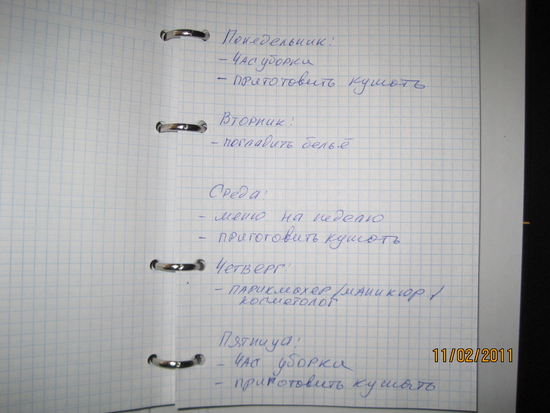 Понедельник:
- час уборки
- приготовить кушать
Вторник:
- погладить бельё
Среда:
- меню на неделю
- приготовить кушать
Четверг:
- парикмахер/маникюр/
косметолог
Пятница:
- час уборки
- приготовить кушать
11/02/2011